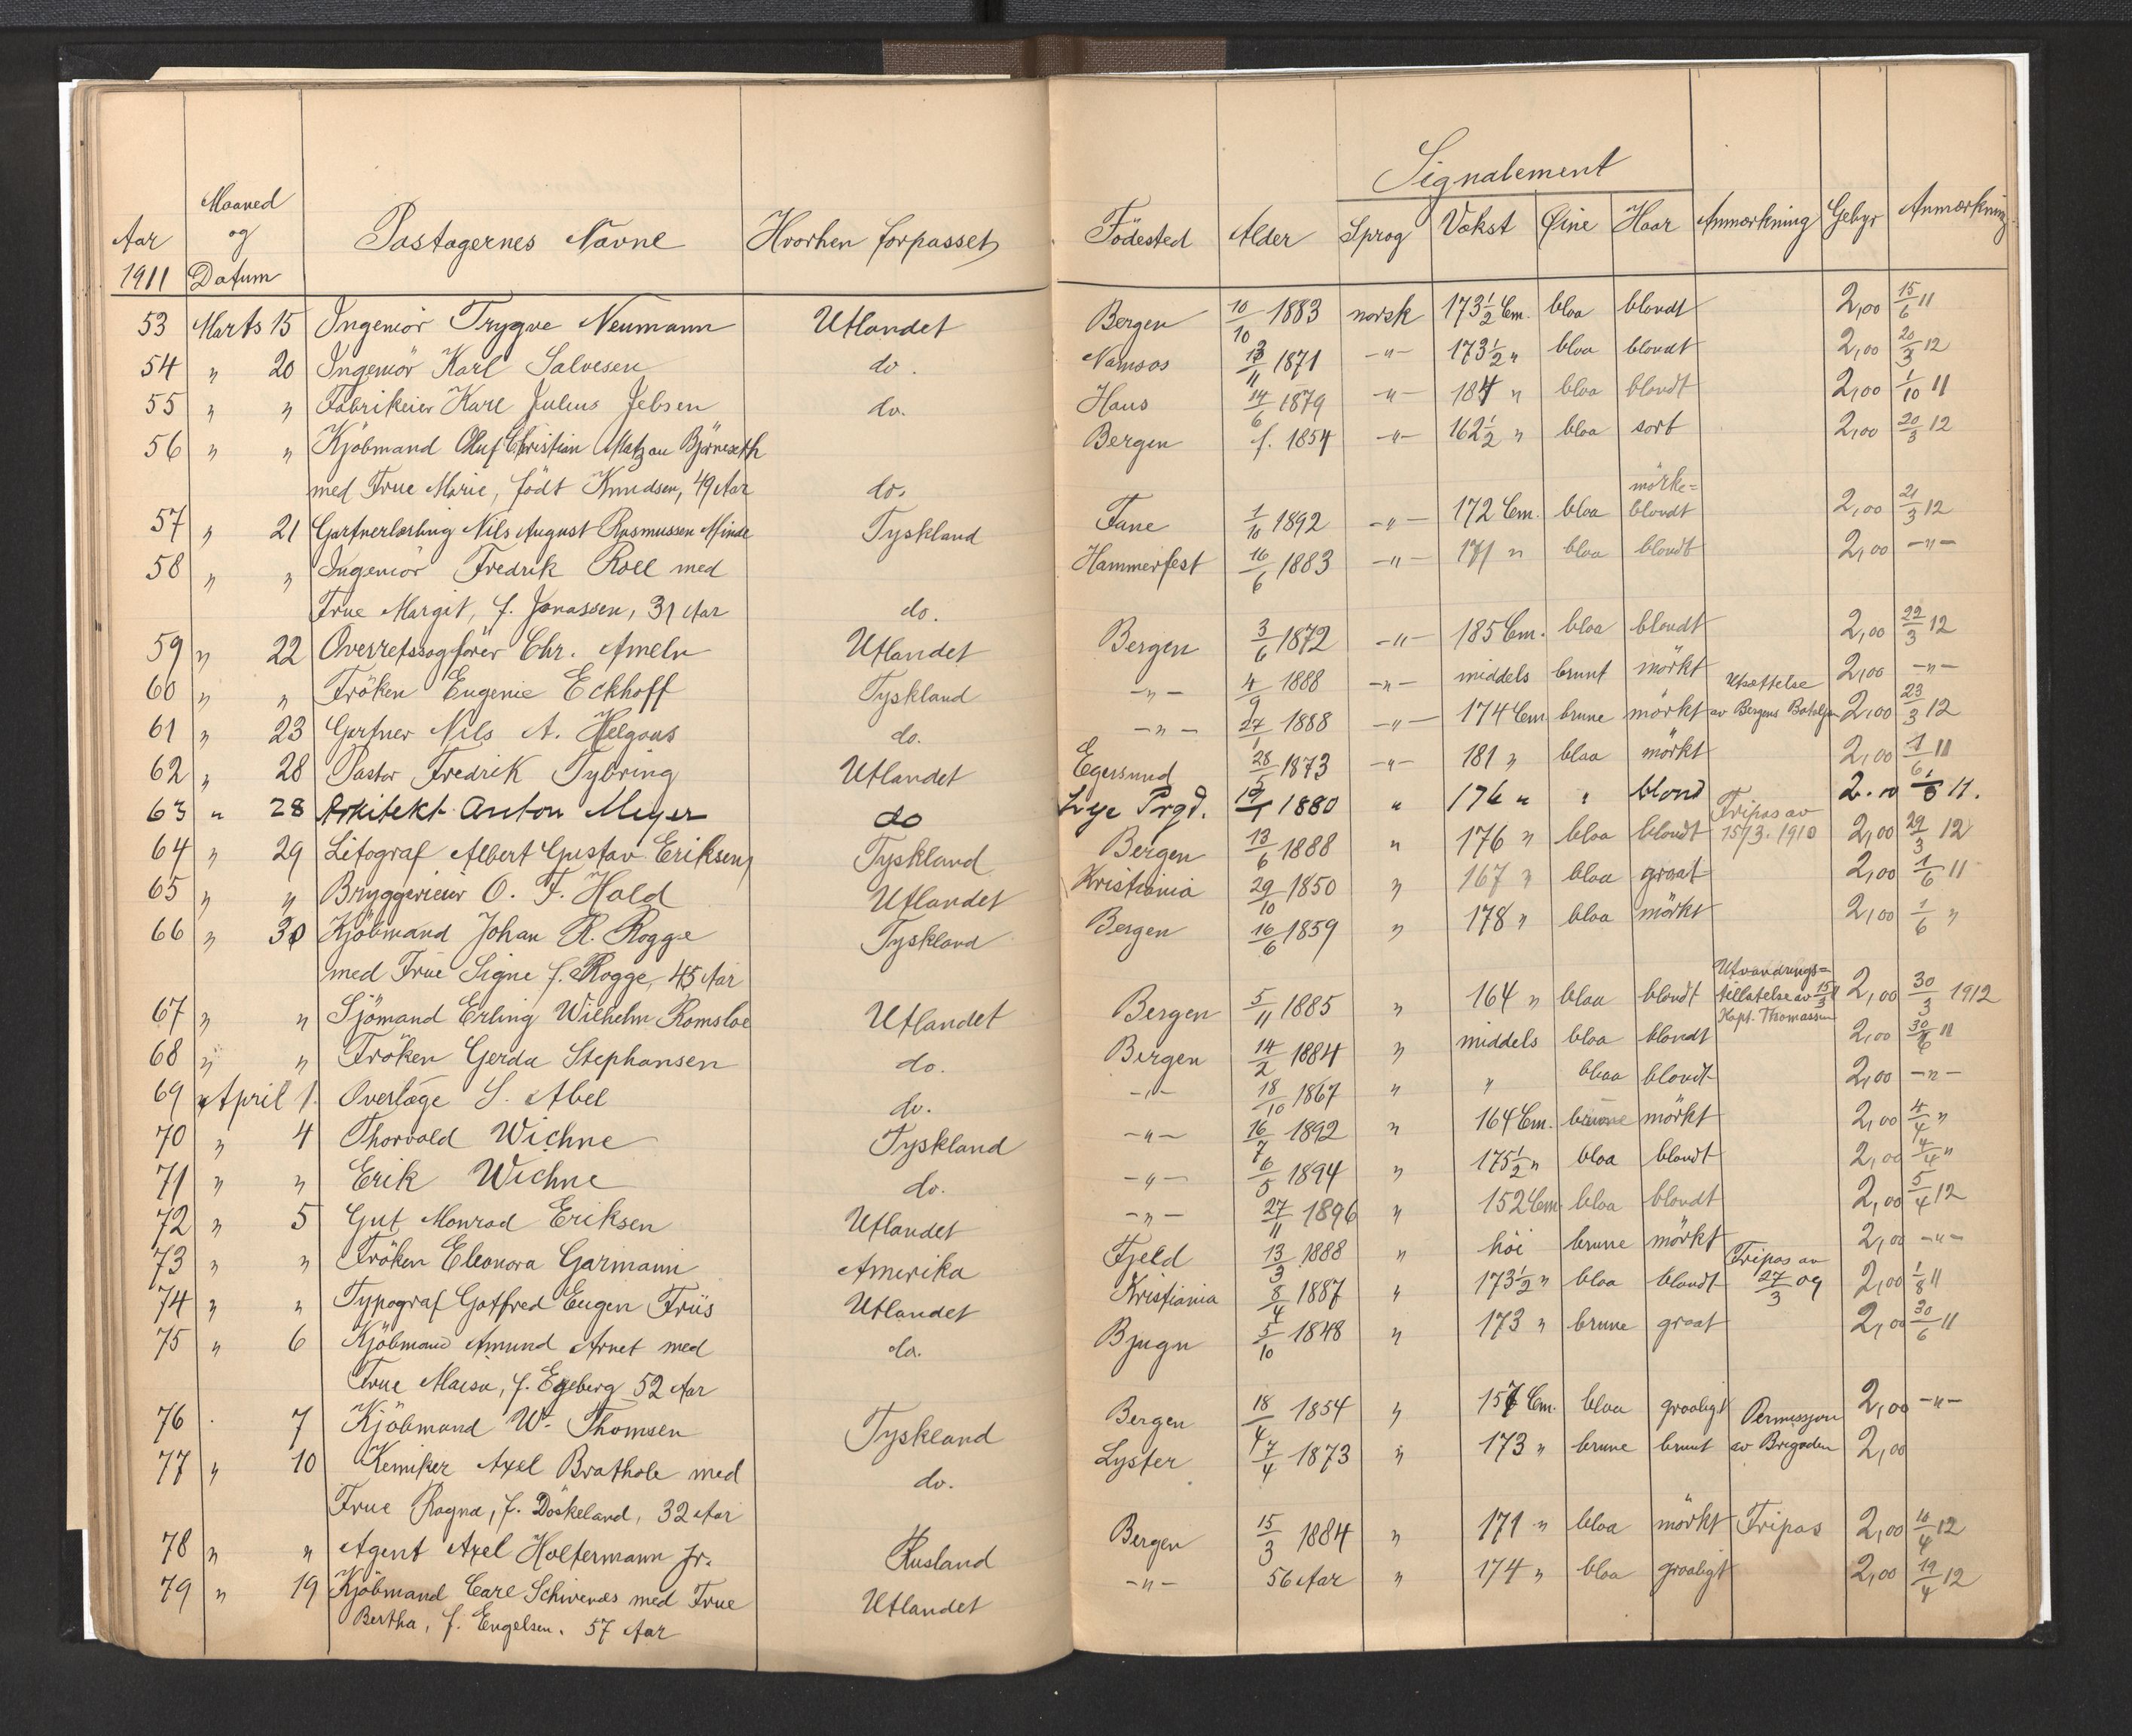 Signalement
Aar 1911 | Maaned og Datum | Pastagernes Navne | Hvorhen forpasset | Födested | Alder | Sprog | Vækst | Øine | Haar | Anmærkning | Gebyr | Anmærkning
53 Marts 15 Ingeniör Trygve Neumann Utlandet Bergen 10/10 1883 norsk 173 1/2 Cm. blaa blondt 2,00 15/6 11
54 " 20 Ingeniör Karl Salvesen do. Namsos 1871 -"- 173 1/2 " blaa blondt 2,00 20/3 12
55 " " Fabrikeier Karl Julius Jebsen do. Haus 14/6 1879 -"- 184 " blaa blondt 2,00 1/10 11
56 " " Kjöbmand Oluf Christian Matzau Björneseth Bergen f. 1854 -"- 162 1/2 " blaa sort 2,00 20/3 12
med Frue Marie, födt Knudsen, 49 Aar do.
57 " 21 Gartnerlærling Nils August Rasmussen Minde Tyskland Fane 1/10 1892 -"- 172 Cm. blaa mörke= blondt 2,00 21/3 12
58 " " Ingeniör Fredrik Roll med Hammerfest 16/6 1883 -"- 171 " blaa blondt 2,00 -"-
Frue Margit, f. Jonassen, 31 Aar do.
59 " 22 Overretssagförer Chr. Ameln Utlandet Bergen 3/6 1872 -"- 185 Cm. blaa blondt 2,00 22/3 12
60 " " Fröken Eugenie Eckhoff Tyskland -"- 4/9 1888 -"- middels brunt mörkt 2,00 -"-
61 " 23 Gartner Nils A. Helgaas do. -"- 27/1 1888 -"- 174 Cm brune mörkt Utsættelse av Bergens Bataljon 2,00 23/3 12
62 " 28 Pastor Fredrik Tybring Utlandet Egersund 28/5 1873 -"- 181 " blaa mörkt 2,00 1/6 11
63 " 28 Arkitekt Anton Meyer do Lye Prgd. 1880 " 176 " " blond 2.00 1/6 11.
64 " 29 Litograf Albert Gustav Eriksen Tyskland Bergen 13/6 1888 " 176 " blaa blondt Fripas av 15/3. 1910 2,00 29/3 12
65 " " Bryggerieier O. F. Hald Utlandet Kristiania 29/10 1850 " 167 " blaa graat 2,00 1/6 11
66 " 30 Kjöbmand Johan R. Rogge Tyskland Bergen 16/6 1859 " 178 " blaa mörkt 2,00 1/6 "
med Frue Signe f. Rogge, 45 Aar
67 " " Sjömand Erling Wilhelm Romsloe Utlandet Bergen 5/11 1885 " 164 " blaa blondt Utvandrings= tillatelse av 15/3 Kapt. Thomassen 2,00 30/3 1912
68 " " Fröken Gerda Stephansen do. Bergen 14/2 1884 " middels blaa blondt 2,00 30/6 11
69 April 1. Overlæge S. Abel do. -"- 18/10 1867 " " blaa blondt 2,00 -"-
70 " 4 Thorvald Wichne Tyskland -"- 16/7 1892 " 164 Cm. brune mörkt 2,00 4/4 "
71 " " Erik Wichne do. -"- 6/5 1894 " 175 1/2 " blaa blondt 2,00 4/4 "
72 " 5 Gut Monrad Eriksen Utlandet -"- 27/11 1896 " 152 Cm blaa blondt 2,00 5/4 12
73 " " Fröken Eleonora Garmann Amerika Fjeld 13/3 1888 " höi brune mörkt 2,00 -"-
74 " " Typograf Gotfred Eugen Friis Utlandet Kristiania 8/4 1887 " 173 1/2 " blaa blondt Fripas av 27/3 09 2,00 1/8 11
75 " 6 Kjöbmand Amund Arnet med do. Bjugn 5/10 1848 " 173 " brune graat 2,00 30/6 11
Frue Maisa, f. Egeberg 52 Aar
76 . 7 Kjöbmand W. Thomsen Tyskland Bergen 18/4 1854 " Cm. blaa graaligt 2,00 -"-
77 " 10 Kemiker Axel Brathole med do. Lyster 17/4 1873 " 173 " brune brunt Permissjon av Brigaden 2,00
Frue Ragna, f. Döskeland, 32 Aar
78 " " Agent Axel Holtermann jr. Rusland Bergen 15/3 1884 " 171 " blaa mörkt Fripas 2,00 10/4 12
79 " 19 Kjöbmand Carl Schwenes med Frue Utlandet -"- 56 Aar " 174 " blaa graaligt 2,00 19/4 12
Bertha, f. Engelsen. 57 Aar